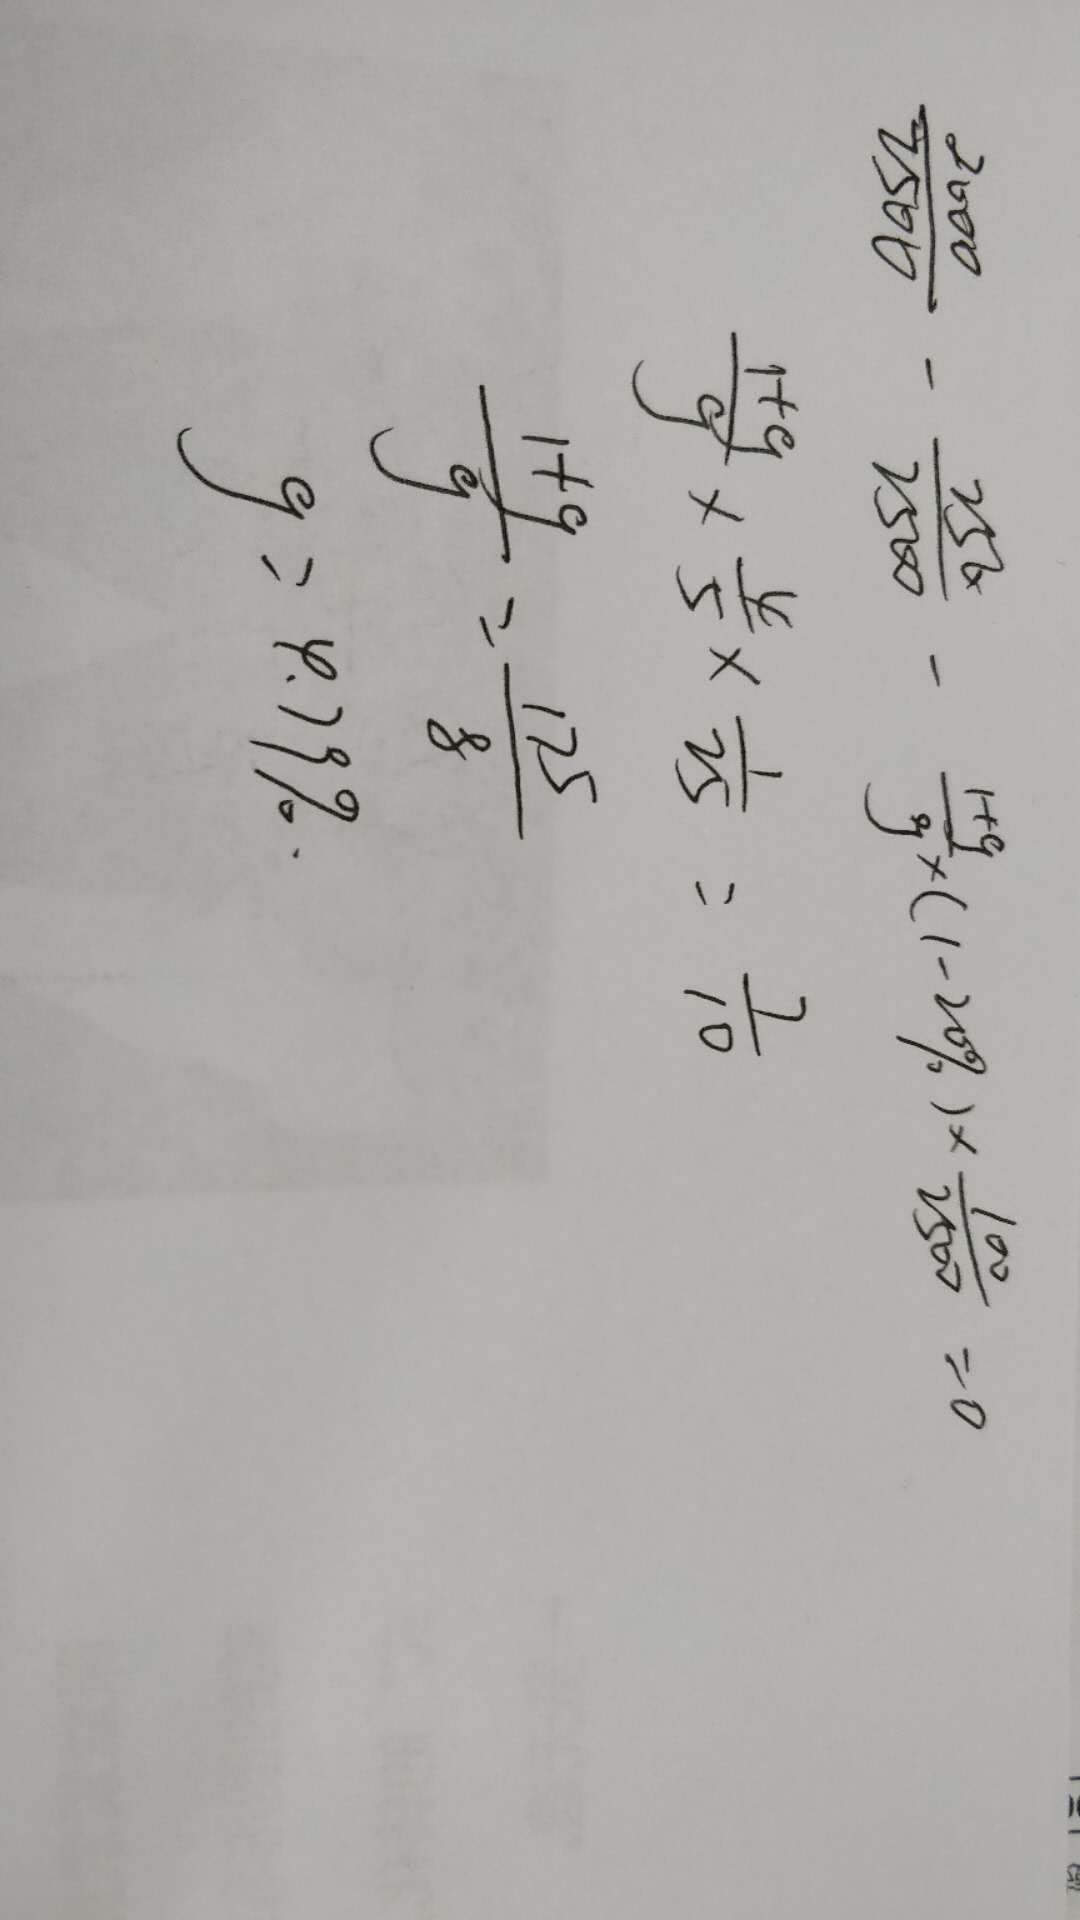 2000/2500 - 250/2500 - (1+g)/g × (1-20%) × 100/2500 = 0
(1+g)/g × 4/5 × 1/25 = 7/10
(1+g)/g = 175/8
g = 4.79%.